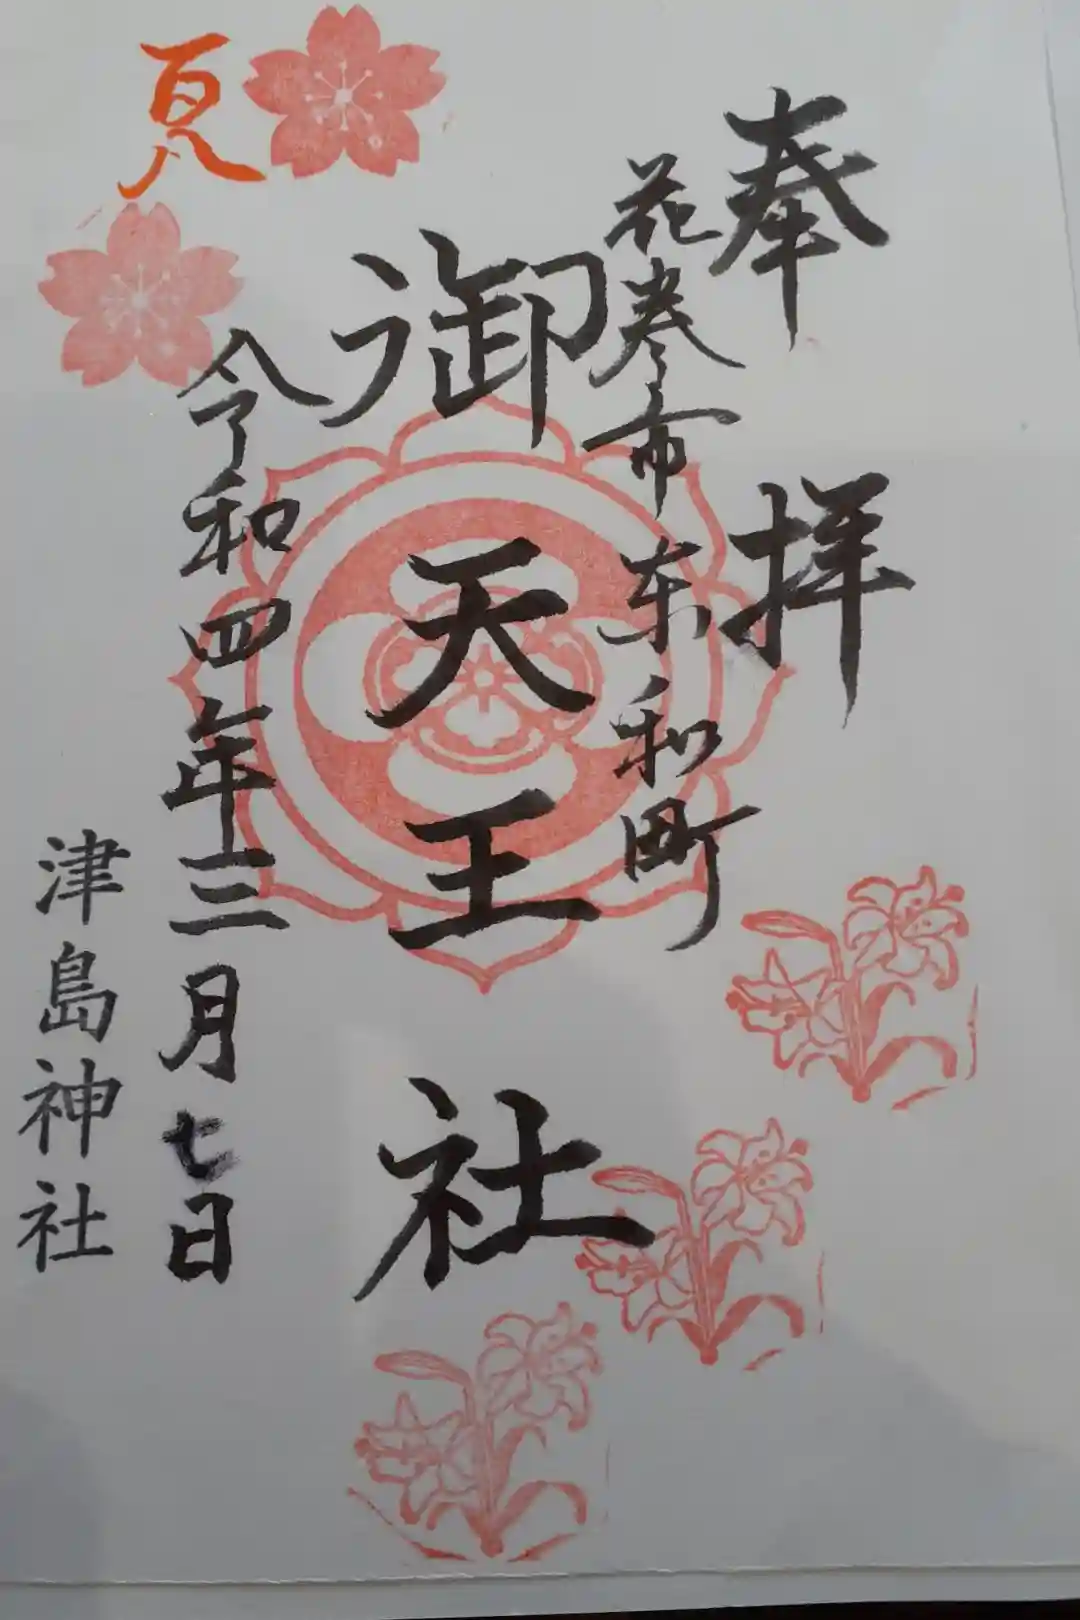 奉拝
花巻市東和町
御天王社
令和四年三月七日
津島神社
夏